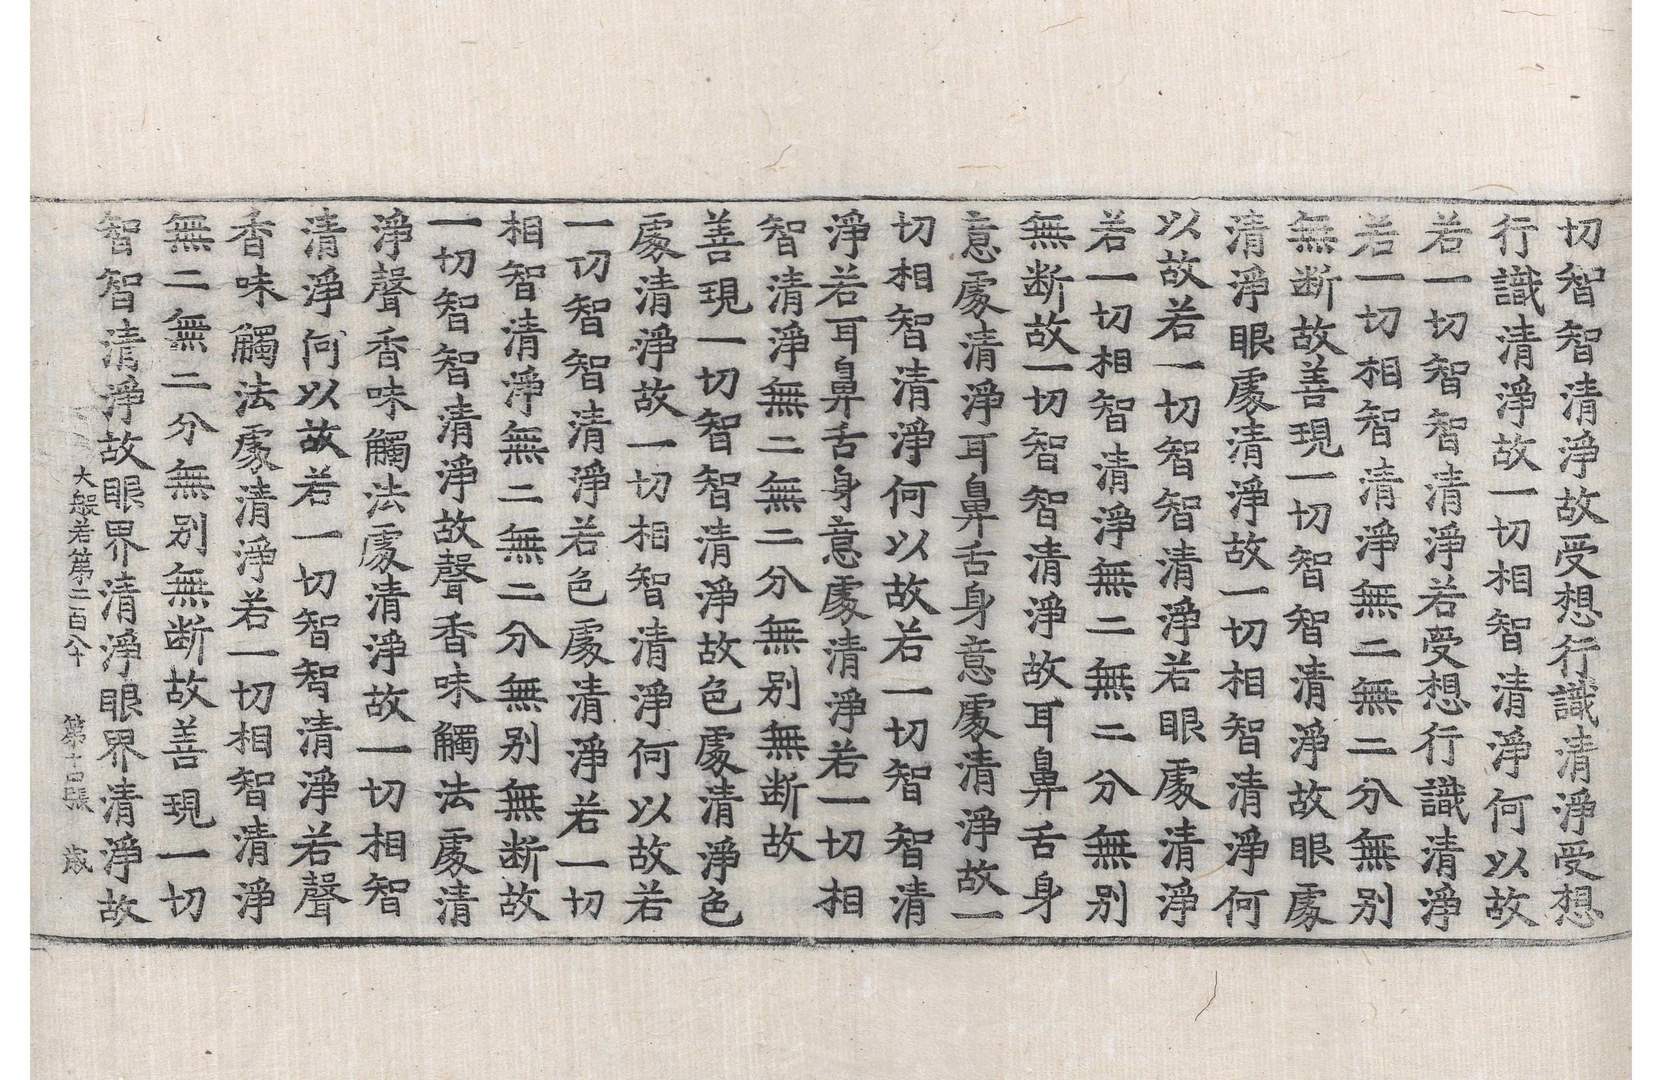 切智智清淨故受想行識清淨受想
行識清淨故一切相智清淨何以故
若一切智智清淨若受想行識清淨
若一切相智清淨無二無二分無别
無断故善現一切智智清淨故眼處
清淨眼處清淨故一切相智清淨何
以故若一切智智清淨若眼處清淨
若一切相智清淨無二無二分無别
無断故一切智智清淨故耳鼻舌身
意處清淨耳鼻舌身意處清淨故一
切相智清淨何以故若一切智智清
淨若耳鼻舌身意處清淨若一切相
智清淨無二無二分無别無断故
善現一切智智清淨故色處清淨色
處清淨故一切相智清淨何以故若
一切智智清淨若色處清淨若一切
相智清淨無二無二分無别無断故
一切智智清淨故聲香味觸法處清
淨聲香味觸法處清淨故一切相智
清淨何以故若一切智智清淨若聲
香味觸法處清淨若一切相智清淨
無二無二分無别無断故善現一切
智智清淨故眼界清淨眼界清淨故
大般若第二百八十 第十四張 歲